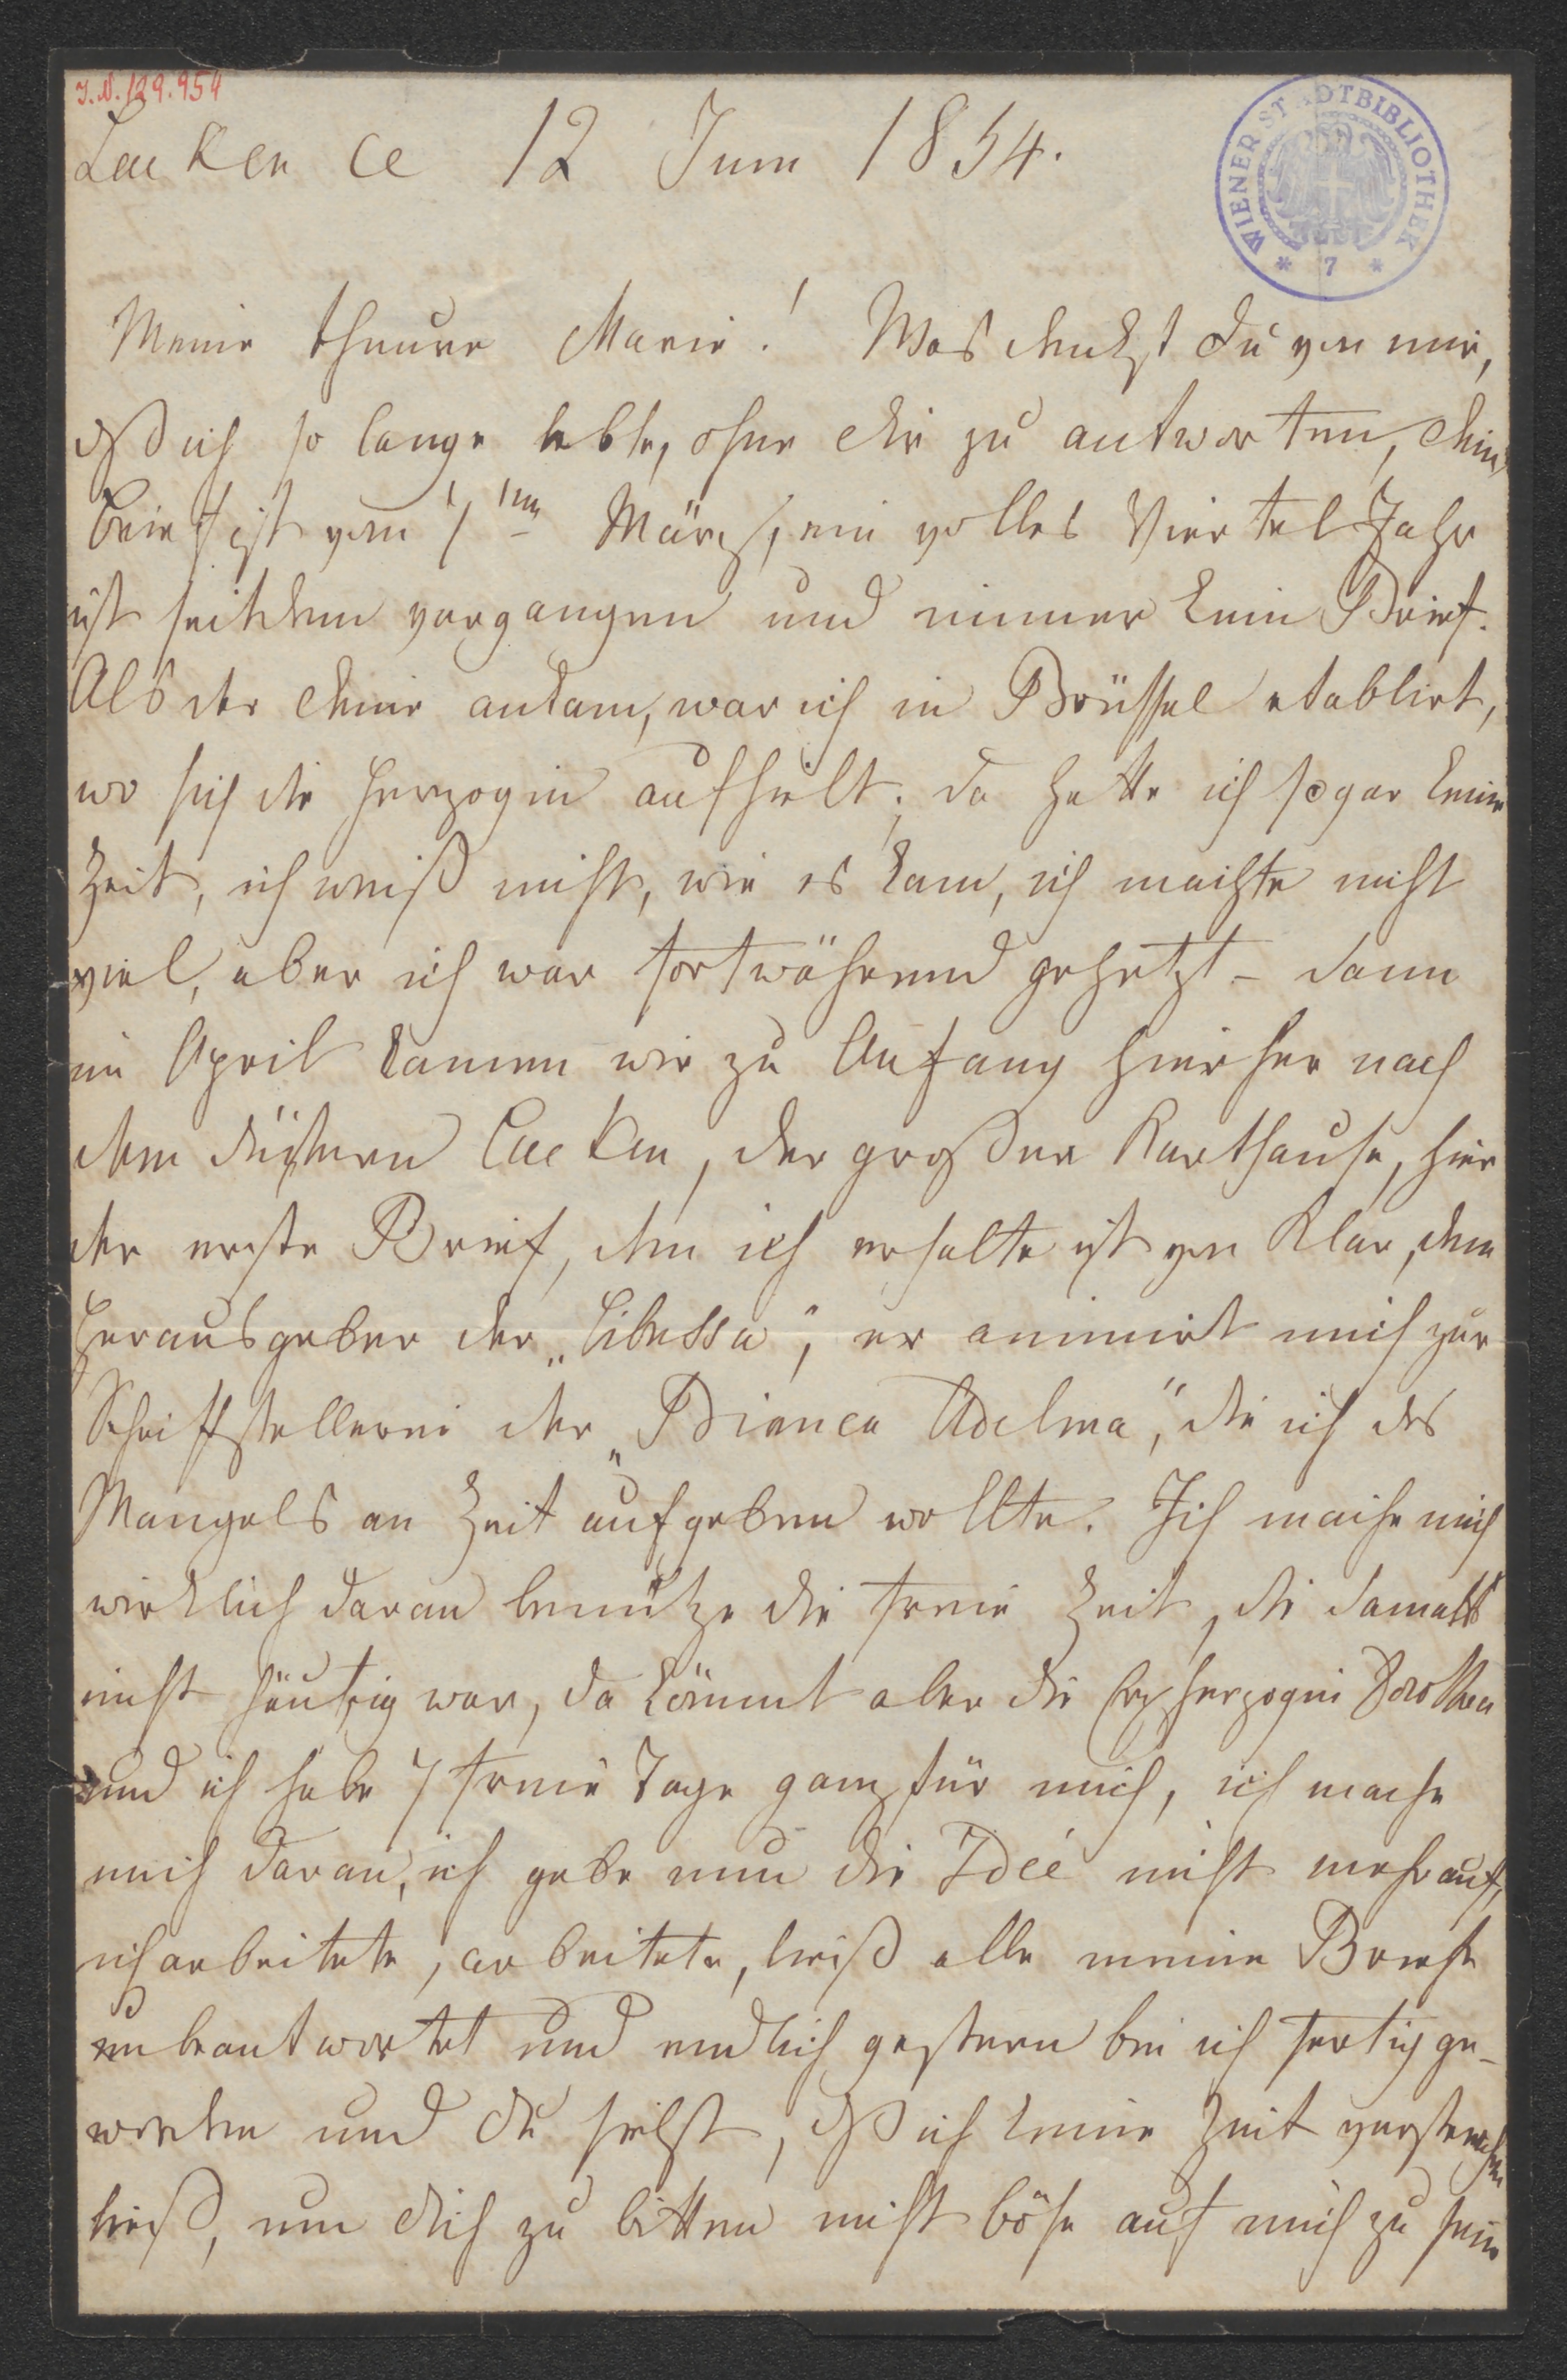 I.N. 129.954
WIENER STADTBIBLIOTHEK
* 7 *
Laeken ce 12 Juin 1854.
Meine theure Marie! Was denkst du von mir,
daß ich so lange lebte, ohne dir zu antworten, dein
Brief ist vom 7ten März, ein volles Viertel Jahr
ist seitdem vergangen und immer kein Brief.
Als der deine ankam, war ich in Brüssel etablirt,
wo sich die Herzogin aufhielt; da hatte ich sogar keine
Zeit, ich weiß nicht, wie es kam, ich machte nicht
viel, aber ich war fortwährend gehetzt – dann
im April kamen wir zu Anfang hierher nach
dem düstern Laeken, der großen Karthause, hier
der erste Brief, den ich erhalte ist von Klar, dem
Herausgeber der „Libussa", er animirt mich zur
Schriftstellerei der „Bianca Adelma", die ich des
Mangels an Zeit aufgeben wollte. Ich mache mich
wirklich daran benütze die freie Zeit, die damals
nicht häufig war, da kömmt aber die Erzherzogin Dorothea
und ich habe 7 freie Tage ganz für mich, ich mache
mich daran, ich gebe nun die Idée nicht mehr auf,
ich arbeitete, arbeitete, ließ alle meine Briefe
unbeantwortet und endlich gestern bin ich fertig ge-
worden und du siehst, daß ich keine Zeit verstreichen
ließ, um dich zu bitten nicht böse auf mich zu sein